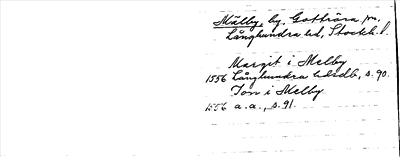 Mälby, by, Gottröra sn.
Långhundra hd, Stockh. l.
Margit i Melby
1556 Långhundra hdsdb, s. 90.
Jon i Melby
1556 a.a., s. 91.